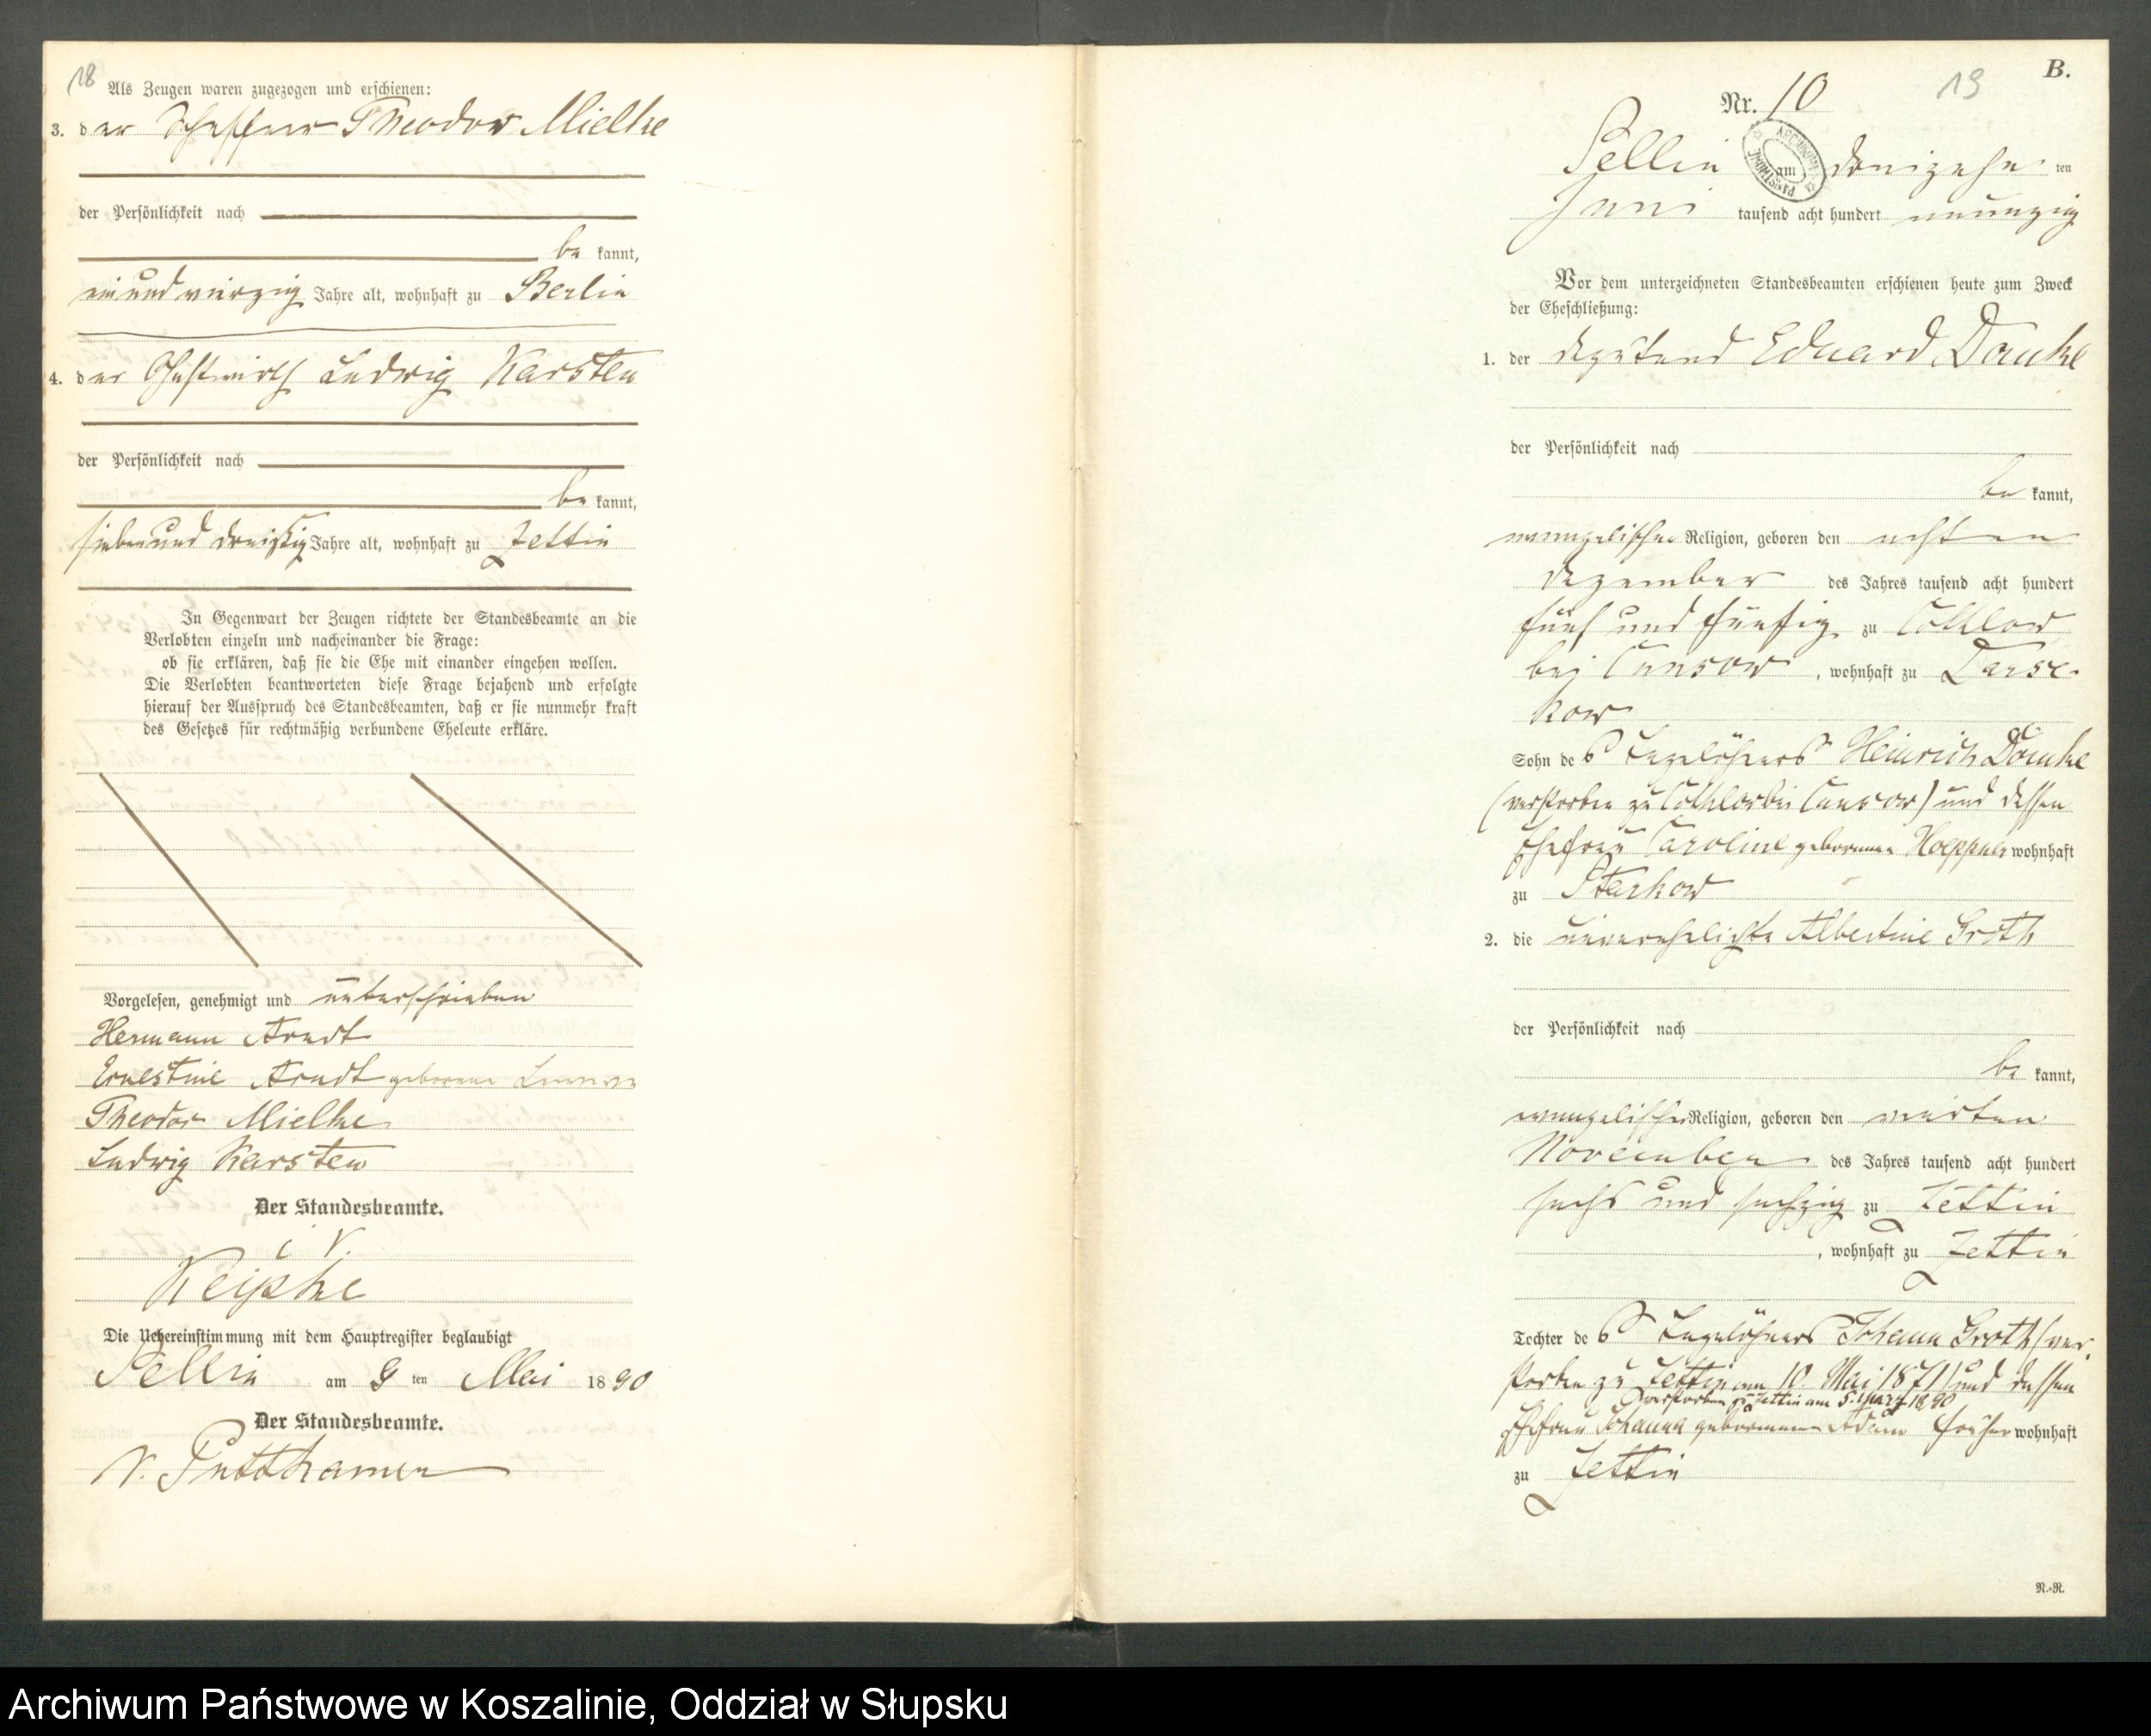 18
Als Zeugen waren zugezogen und erschienen:
3. der Schaffner Theodor Mielke
der Persönlichkeit nach
be kannt,
ein und vierzig Jahre alt, wohnhaft zu Berlin
4. der Gastwirth Ludwig Karsten
der Persönlichkeit nach
be kannt,
sieben und dreißig Jahre alt, wohnhaft zu Zettin
In Gegenwart der Zeugen richtete der Standesbeamte an die
Verlobten einzeln und nacheinander die Frage:
ob sie erklären, daß sie die Ehe mit einander eingehen wollen.
Die Verlobten beantworteten diese Frage bejahend und erfolgte
hierauf der Ausspruch des Standesbeamten, daß er sie nunmehr kraft
des Gesetzes für rechtmäßig verbundene Eheleute erkläre.
Vorgelesen, genehmigt und unterschrieben
Hermann Arndt
Ernestine Arndt geborene
Theodor Mielke
Ludwig Karsten
Der Standesbeamte.
i V.
Die Uebereinstimmung mit dem Hauptregister beglaubigt
Sellin am 9 ten Mai 18 90
Der Standesbeamte.
v. Puttkamer
B.
19
Nr. 10
Sellin am dreizehn ten
Juni tausend acht hundert neunzig
Vor dem unterzeichneten Standesbeamten erschienen heute zum Zweck
der Eheschließung:
1. der Deputand Eduard Domke
der Persönlichkeit nach
be kannt,
evangelischer Religion, geboren den achten
Dezember des Jahres tausend acht hundert
fünf und fünfzig zu Cottlow
bei Cunsow, wohnhaft zu Darse-
kow
Sohn des Tagelöhners Heinrich Domke
(verstorben zu Cottlow bei Cunsow) und dessen
Ehefrau Caroline geborenen Hoeppner wohnhaft
zu Starkow
2. die unverehelichte Albertine Groth
der Persönlichkeit nach
be kannt,
evangelischer Religion, geboren den vierten
November des Jahres tausend acht hundert
sechs und sechzig zu Zettin
, wohnhaft zu Zettin
Tochter des Tagelöhners Johann Groth (ver-
storben zu Zettin am 10. Mai 1871) und dessen
(verstorben zu Zettin am 5. März 1890
Ehefrau Johanna geborenen Adam früher wohnhaft
zu Zettin
N.-R.
Archiwum Państwowe w Koszalinie, Oddział w Słupsku